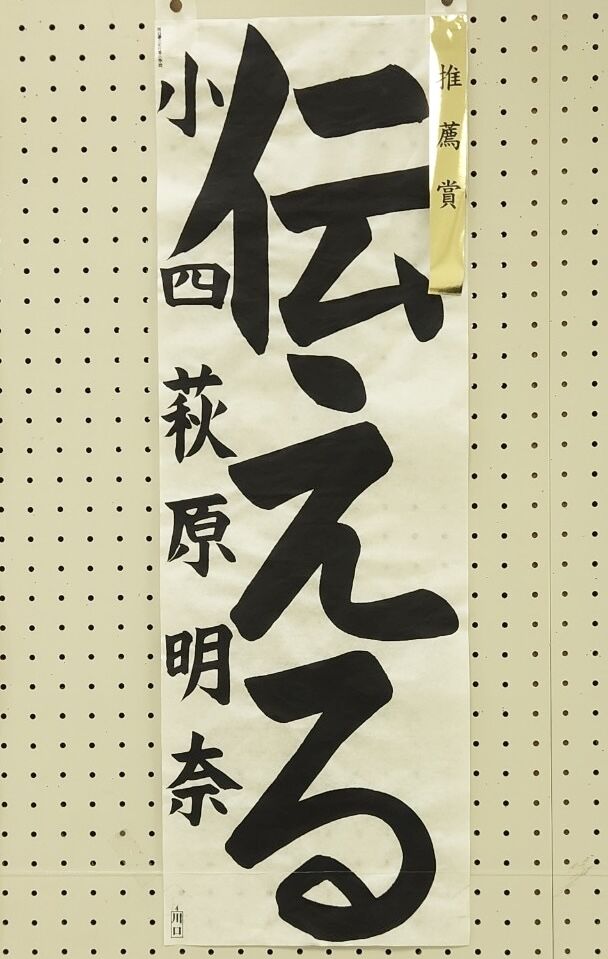 推薦賞
伝える
小四 萩原明奈
4
川口